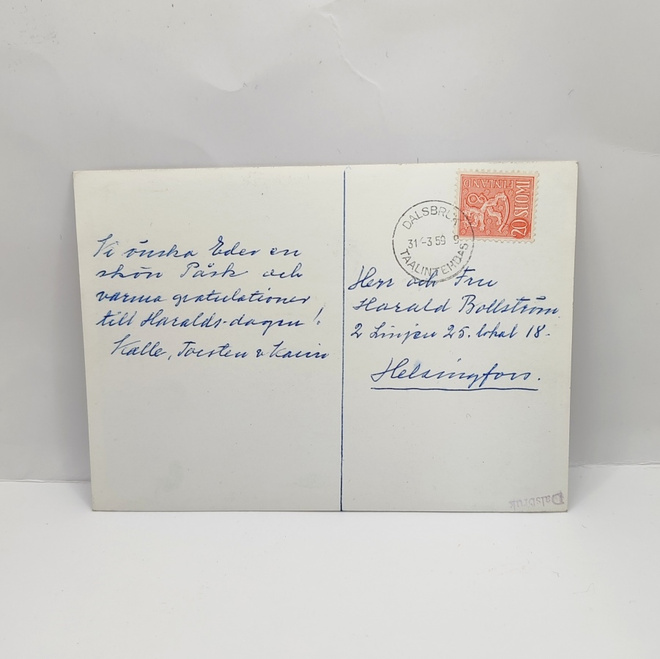 Vi önska Eder en
skön Påsk och
varma gratulationer
till Haralds-dagen!
Kalle, Torsten & Karin
DALSBRUK
31-3.59
TAALINTEHDAS
SUOMI FINLAND
20
Herr och Fru
Harald Bollström
2 Linjen 25. lokal 18.
Helsingfors.
Dalsbruk